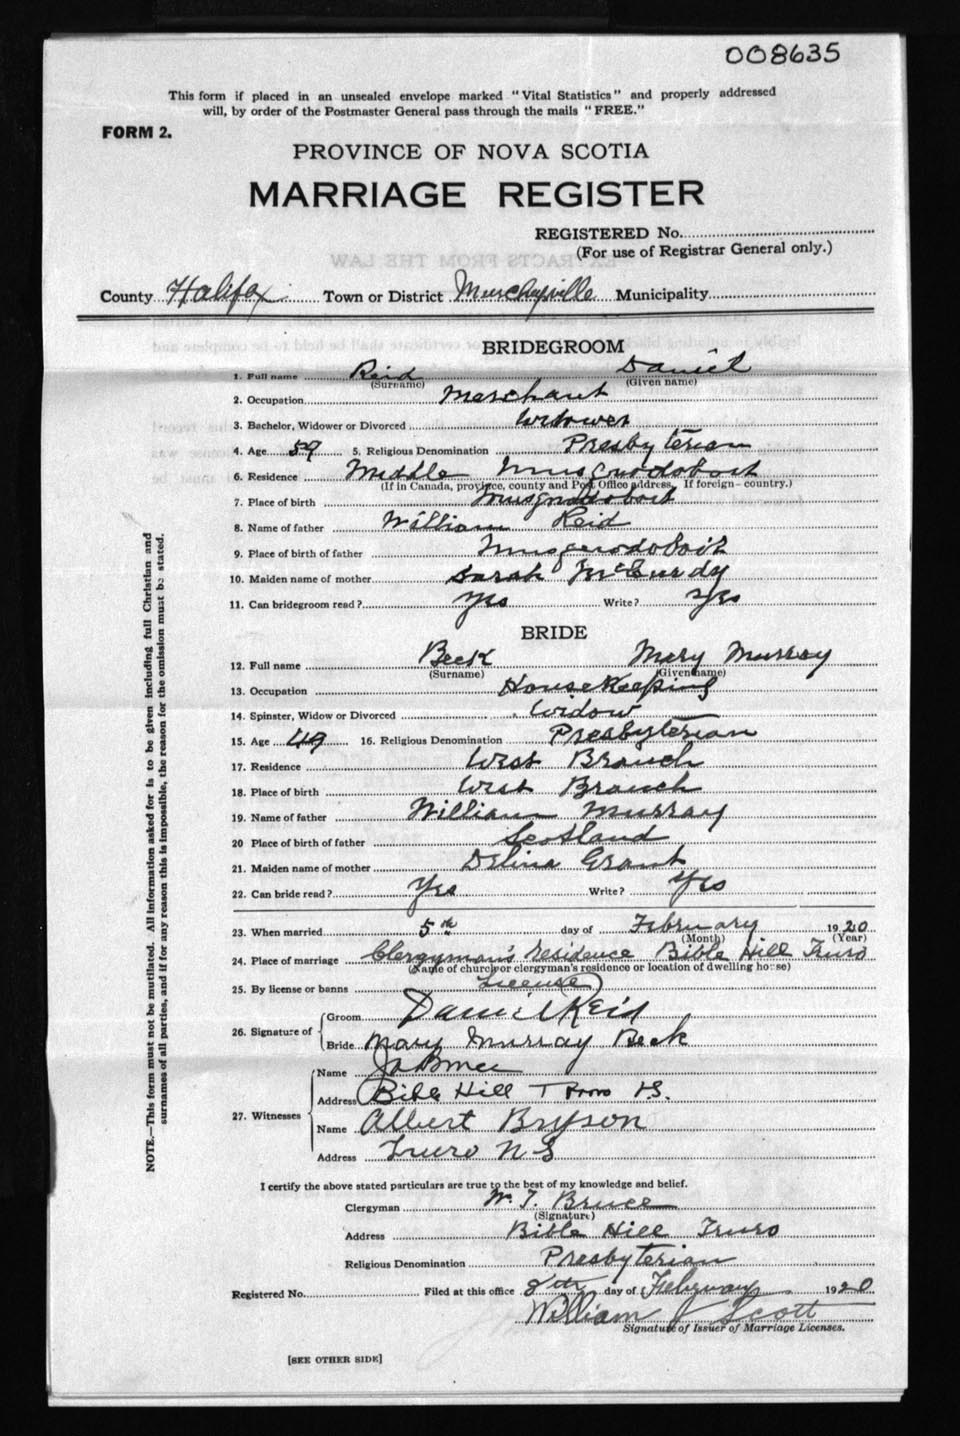 008635
This form if placed in an unsealed envelope marked "Vital Statistics" and properly addressed
will, by order of the Postmaster General pass through the mails "FREE."
FORM 2.
PROVINCE OF NOVA SCOTIA
MARRIAGE REGISTER
REGISTERED No.
(For use of Registrar General only.)
EXTRACTS FROM THE LAW
County Halifax Town or District Murchyville Municipality
BRIDEGROOM
1. Full name Reid Daniel
(Surname) (Given name)
2. Occupation Merchant
3. Bachelor, Widower or Divorced Widower
4. Age 59 5. Religious Denomination Presbyterian
6. Residence Middle Musquodoboit
(If in Canada, province, county and Post Office address. If foreign—country.)
7. Place of birth Musquodoboit
8. Name of father William Reid
9. Place of birth of father Musquodoboit
10. Maiden name of mother Sarah McCurdy
11. Can bridegroom read? Yes Write? Yes
BRIDE
12. Full name Beck Mary Murray
(Surname) (Given name)
13. Occupation HouseKeeping
14. Spinster, Widow or Divorced Widow
15. Age 49 16. Religious Denomination Presbyterian
17. Residence West Branch
18. Place of birth West Branch
19. Name of father William Murray
20 Place of birth of father Scotland
21. Maiden name of mother Delina Grant
22. Can bride read? Yes Write? Yes
23. When married 5th day of February 1920
(Month) (Year)
24. Place of marriage Clergyman's residence Bible Hill Truro
(Name of church or clergyman's residence or location of dwelling house)
25. By license or banns License
26. Signature of Groom Daniel Reid
Bride Mary Murray Beck
27. Witnesses
Name
Address Bible Hill Truro N.S.
Name Albert Bryson
Address Truro N S
I certify the above stated particulars are true to the best of my knowledge and belief.
Clergyman Wm. T. Bruce
(Signature)
Address Bible Hill Truro
Religious Denomination Presbyterian
Registered No. Filed at this office 9th day of February 1920
William J Scott
Signature of Issuer of Marriage Licenses.
[SEE OTHER SIDE]
NOTE.—This form must not be mutilated. All information asked for is to be given including full Christian and
surnames of all parties, and if for any reason this is impossible, the reason for the omission must be stated.